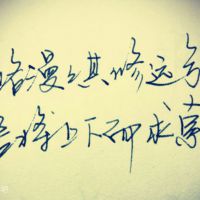 路漫々其修远兮
吾将上下而求索